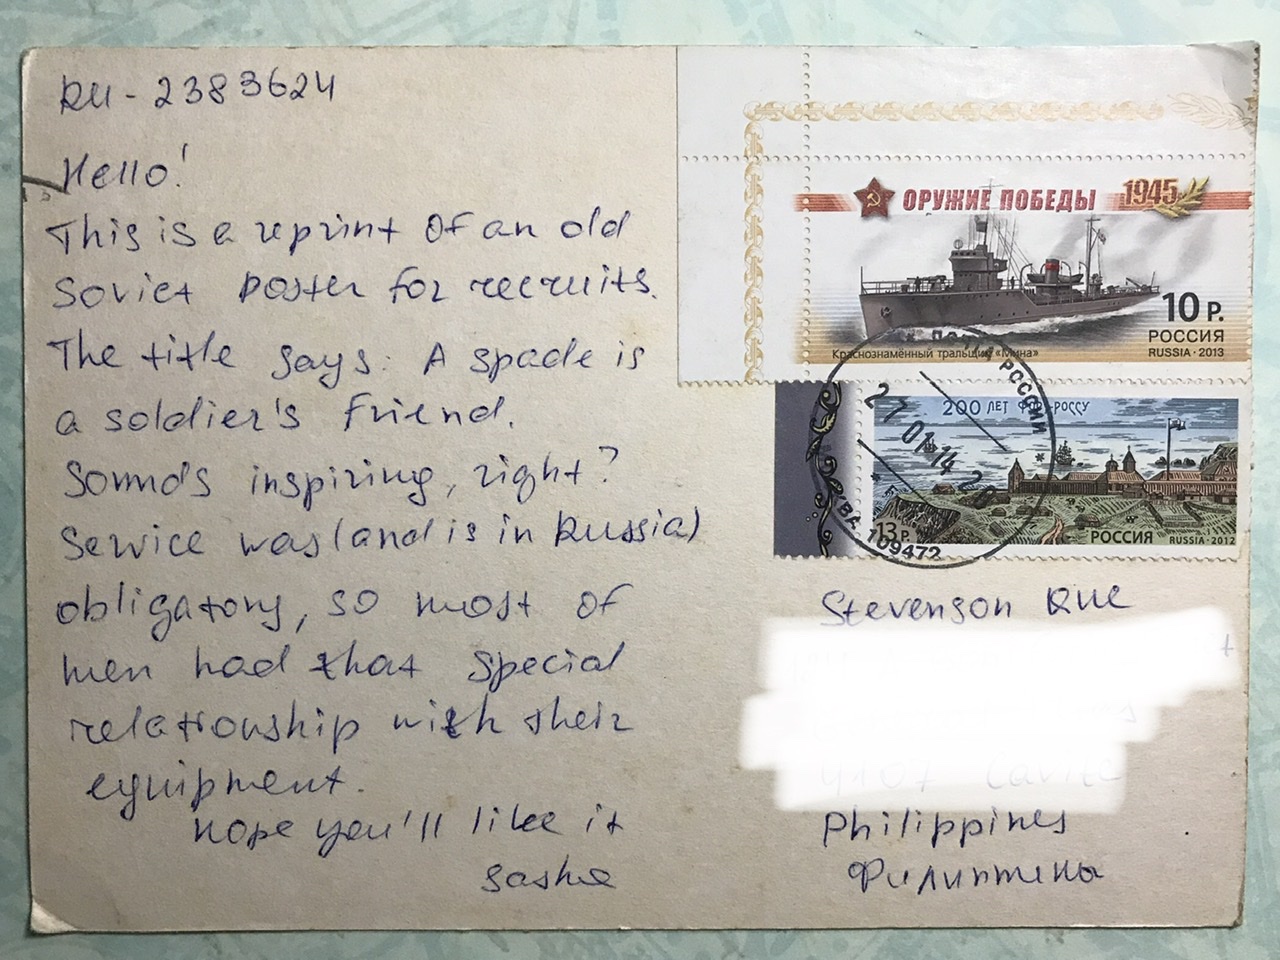 RU - 2383624
Hello!
This is a reprint of an old
Soviet poster for recruits.
The title says: A spade is
a soldier's friend.
Sounds inspiring, right?
Service was (and is in Russia)
obligatory, so most of
men had that special
relationship with their
equipment.
Hope you'll like it
Sasha
ОРУЖИЕ ПОБЕДЫ 1945
10 Р.
РОССИЯ
RUSSIA · 2013
Краснознамённый тральщик «Мина»
РОССИИ
27 01 14
109472
200 ЛЕТ РОССУ
13 Р.
РОССИЯ RUSSIA · 2012
Stevenson Rue
Philippines
Филиппины